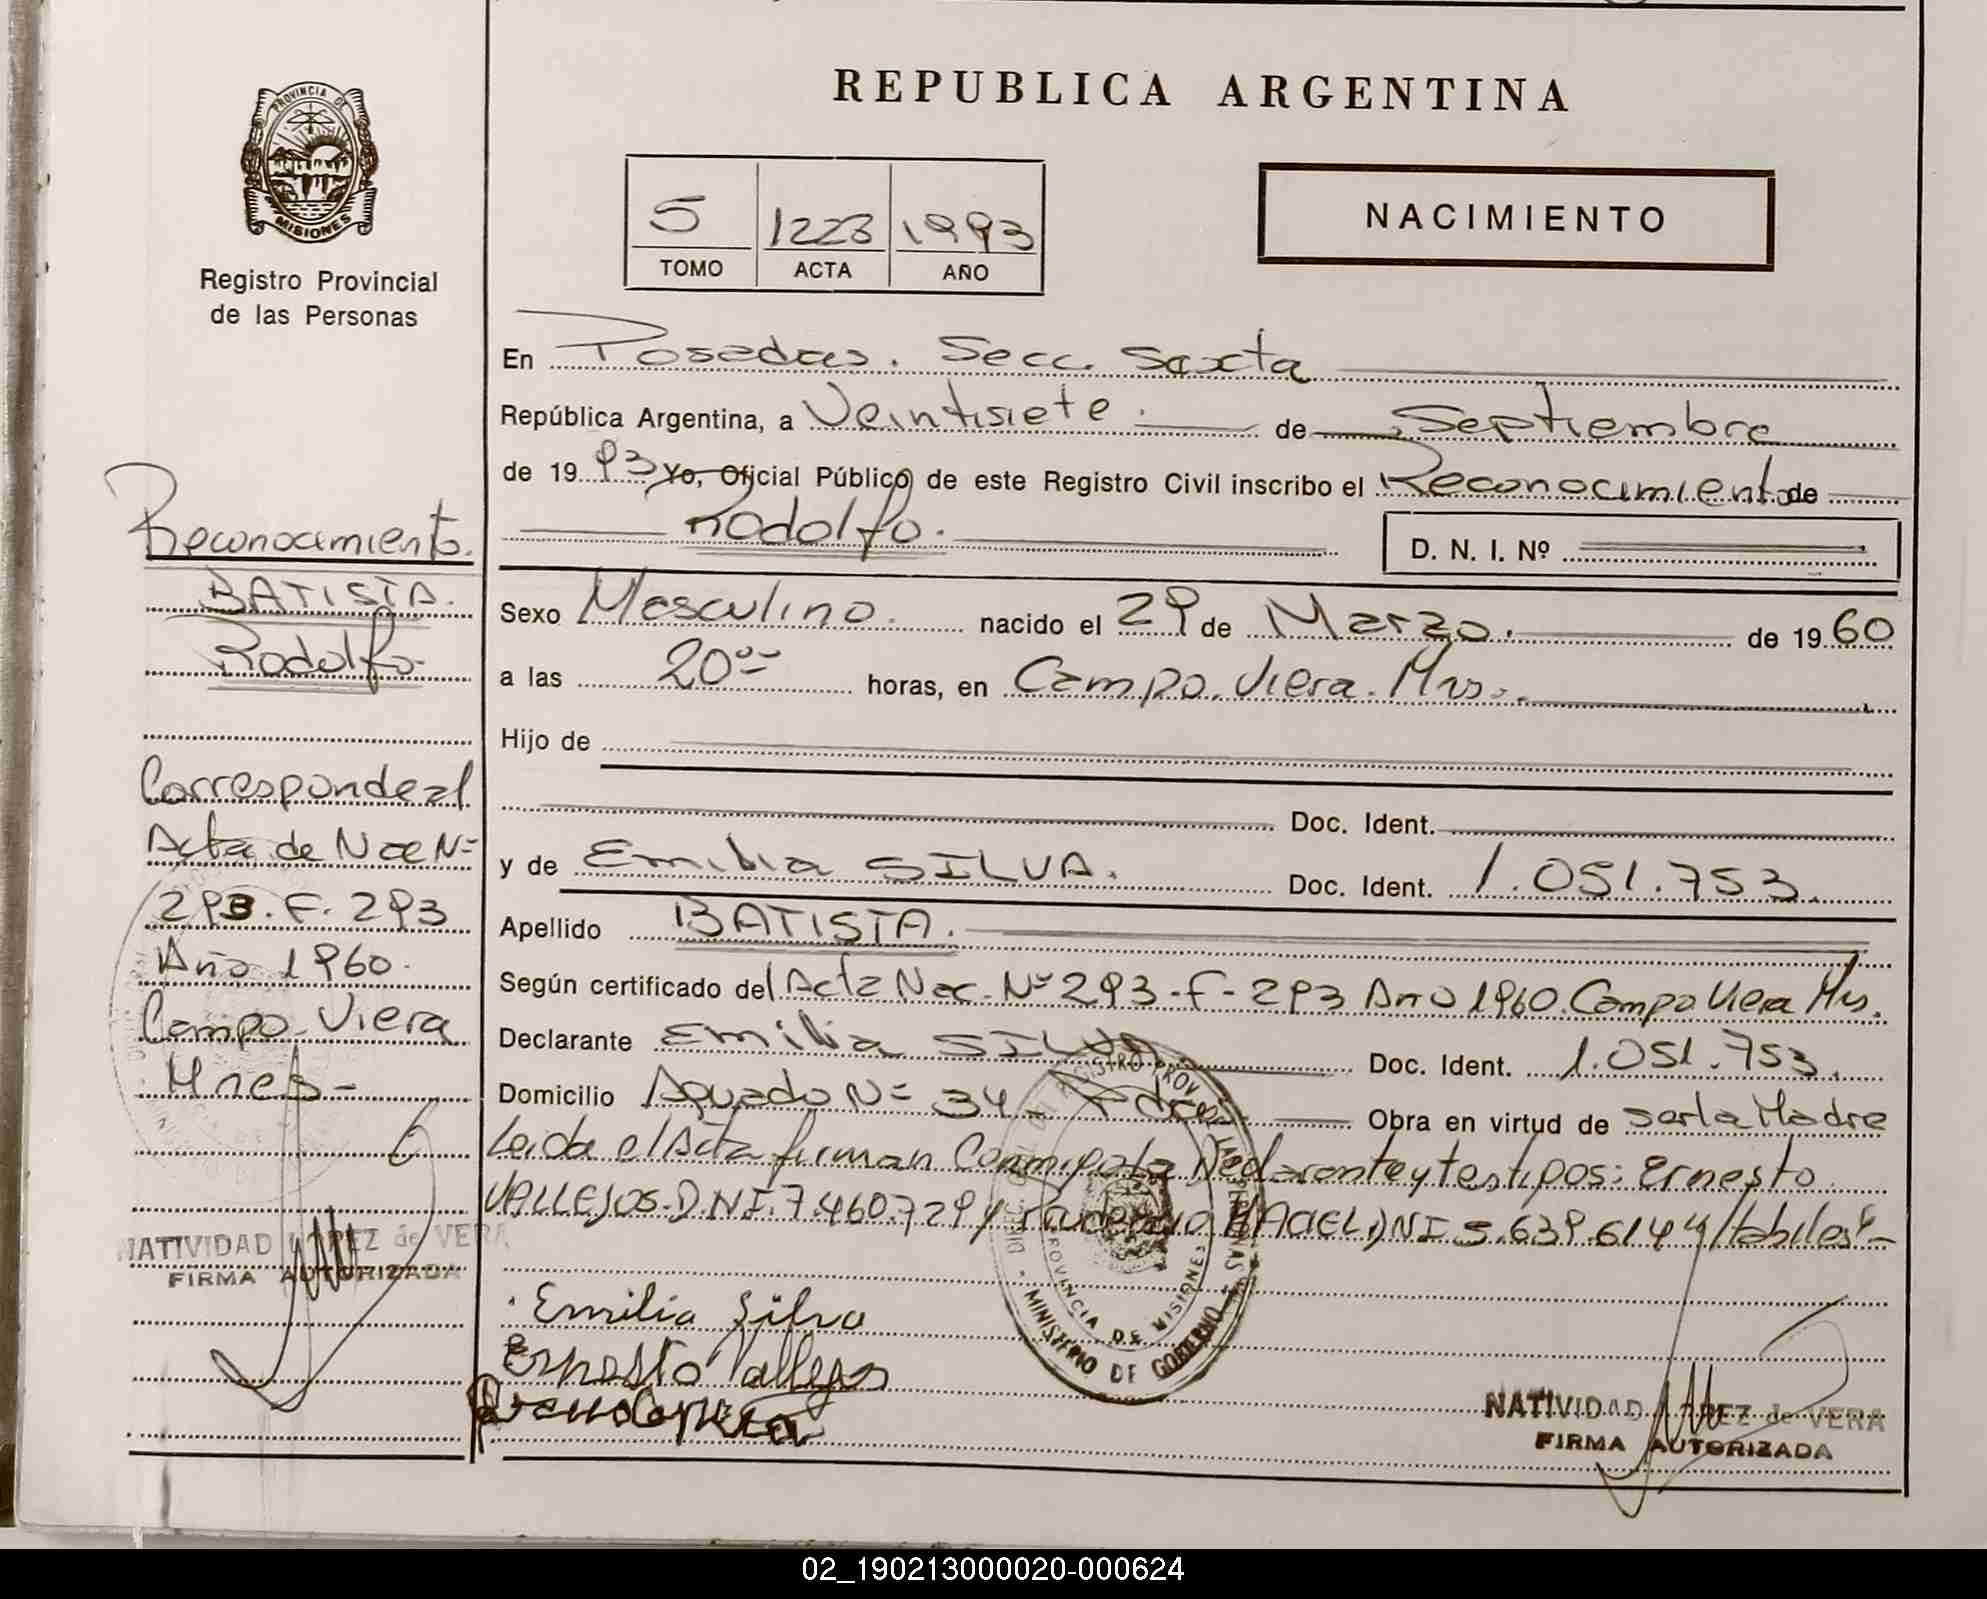 REPUBLICA ARGENTINA
PROVINCIA DE
MISIONES
Registro Provincial
de las Personas
5 1223 1993
TOMO ACTA AÑO
NACIMIENTO
En Posadas. Secc. Sexta
República Argentina, a Veintisiete. de Septiembre
de 19 93 Yo, Oficial Público de este Registro Civil inscribo el Reconocimiento de
Rodolfo.
D. N. I. Nº
Sexo Masculino. nacido el 29 de Marzo. de 19 60
a las 20⁰⁰ horas, en Campo. Viera. Mns.
Hijo de
Doc. Ident.
y de Emilia SILVA. Doc. Ident. 1.051.753.
Apellido BATISTA.
Según certificado del Acta Nac. Nº 293-F-293 Año 1960. Campo Viera Mns.
Declarante Emilia SILVA Doc. Ident. 1.051.753.
Domicilio Aguado Nº 34 Obra en virtud de ser la Madre
Leida el Acta firman Conmigo la Declarante y testigos: Ernesto
VALLEJOS-D.N.I.7.460.729 y DNI 5.639.614 y Habiles-
Emilia Silva
Ernesto Vallejos
Reconocimiento.
BATISTA.
Rodolfo-
Corresponde al
Acta de Nac Nº
293.F.293
Año 1960.
Campo Viera
Mnes-
NATIVIDAD LOPEZ de VERA
FIRMA AUTORIZADA
PROVINCIA DE MISIONES
MINISTERIO DE GOBIERNO
NATIVIDAD LOPEZ de VERA
FIRMA AUTORIZADA
02_190213000020-000624